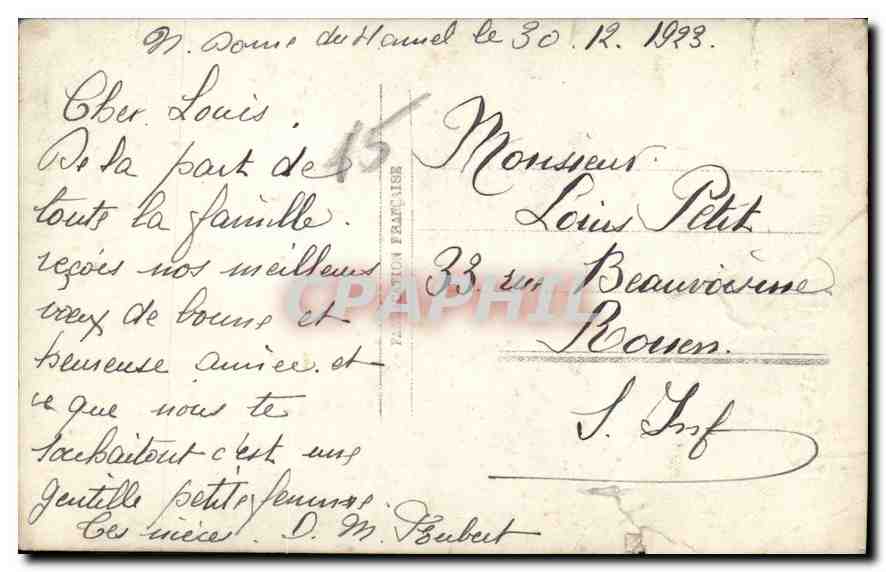 N. Dame du Hamel le 30.12.1923.
Cher Louis
De la part de
toute la famille.
reçois nos meilleurs
vœux de bonne et
heureuse année. et
ce que nous te
souhaitont c'est une
gentille petite femme.
D. M. Hubert
15
FABRICATION FRANÇAISE
Monsieur
Louis Petit
33 rue Beauvoisine
Rouen.
S. Inf
CPAPHIL